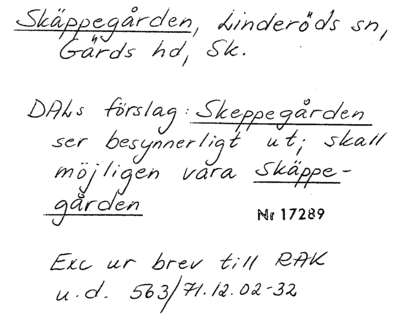 Skäppegården, Linderöds sn,
Gärds hd, Sk.
DALs förslag: Skeppegården
ser besynnerligt ut; skall
möjligen vara Skäppe-
gården
Nr 17289
Exc ur brev till RAK
u.d. 563/71.12.02-32